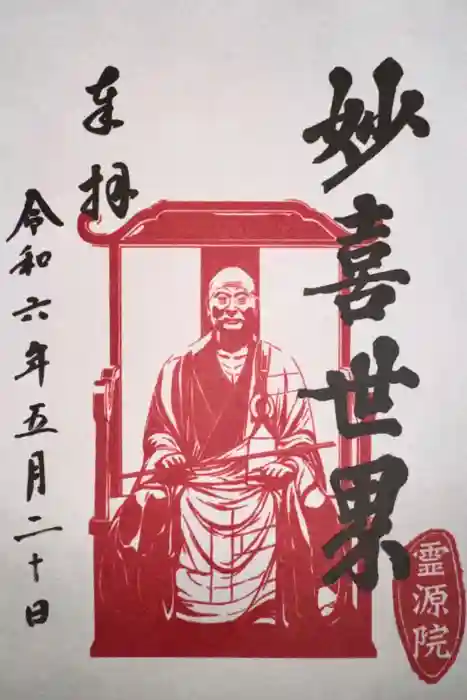 妙喜世界
奉拝
令和六年五月二十日
霊源院